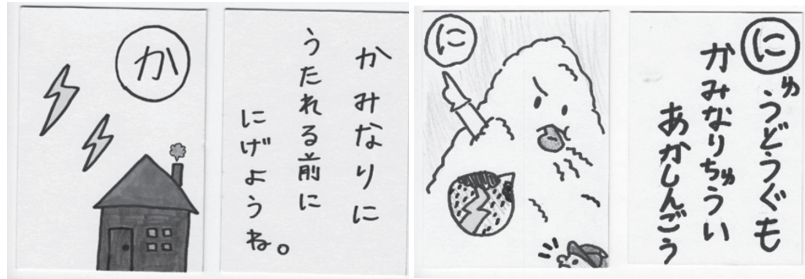 か
かみなりに
うたれる前に
にげようね。
に
にゅうどうぐも
かみなりちゅうい
あかしんごう